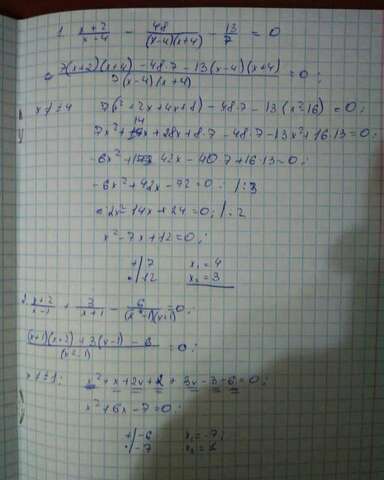 1. x+2/x-4 - 48/(x-4)(x+4) - 13/7 = 0
7(x+2)(x+4) - 48·7 - 13(x-4)(x+4)/7(x-4)(x+4) = 0;
x≠±4 7(x²+2x+4x+8) - 48·7 - 13(x²-16) = 0;
7x²+14x+28x+8·7-48·7-13x²+16·13=0;
-6x²+ 42x-40·7+16·13=0;
-6x²+42x-72=0 /:3
2x²-14x+24=0; /:2
x²-7x+12=0;
+/7 x₁=4
·/12 x₂=3
2. x+2/x-1 + 3/x+1 - 6/(x-1)(x+1) =0;
(x+1)(x+2)+3(x-1)-6/(x²-1) =0;
x≠±1: x²+x+2x+2+3x-3-6=0;
x²+6x-7=0;
+/-6 x₁=-7;
·/-7 x₂=1